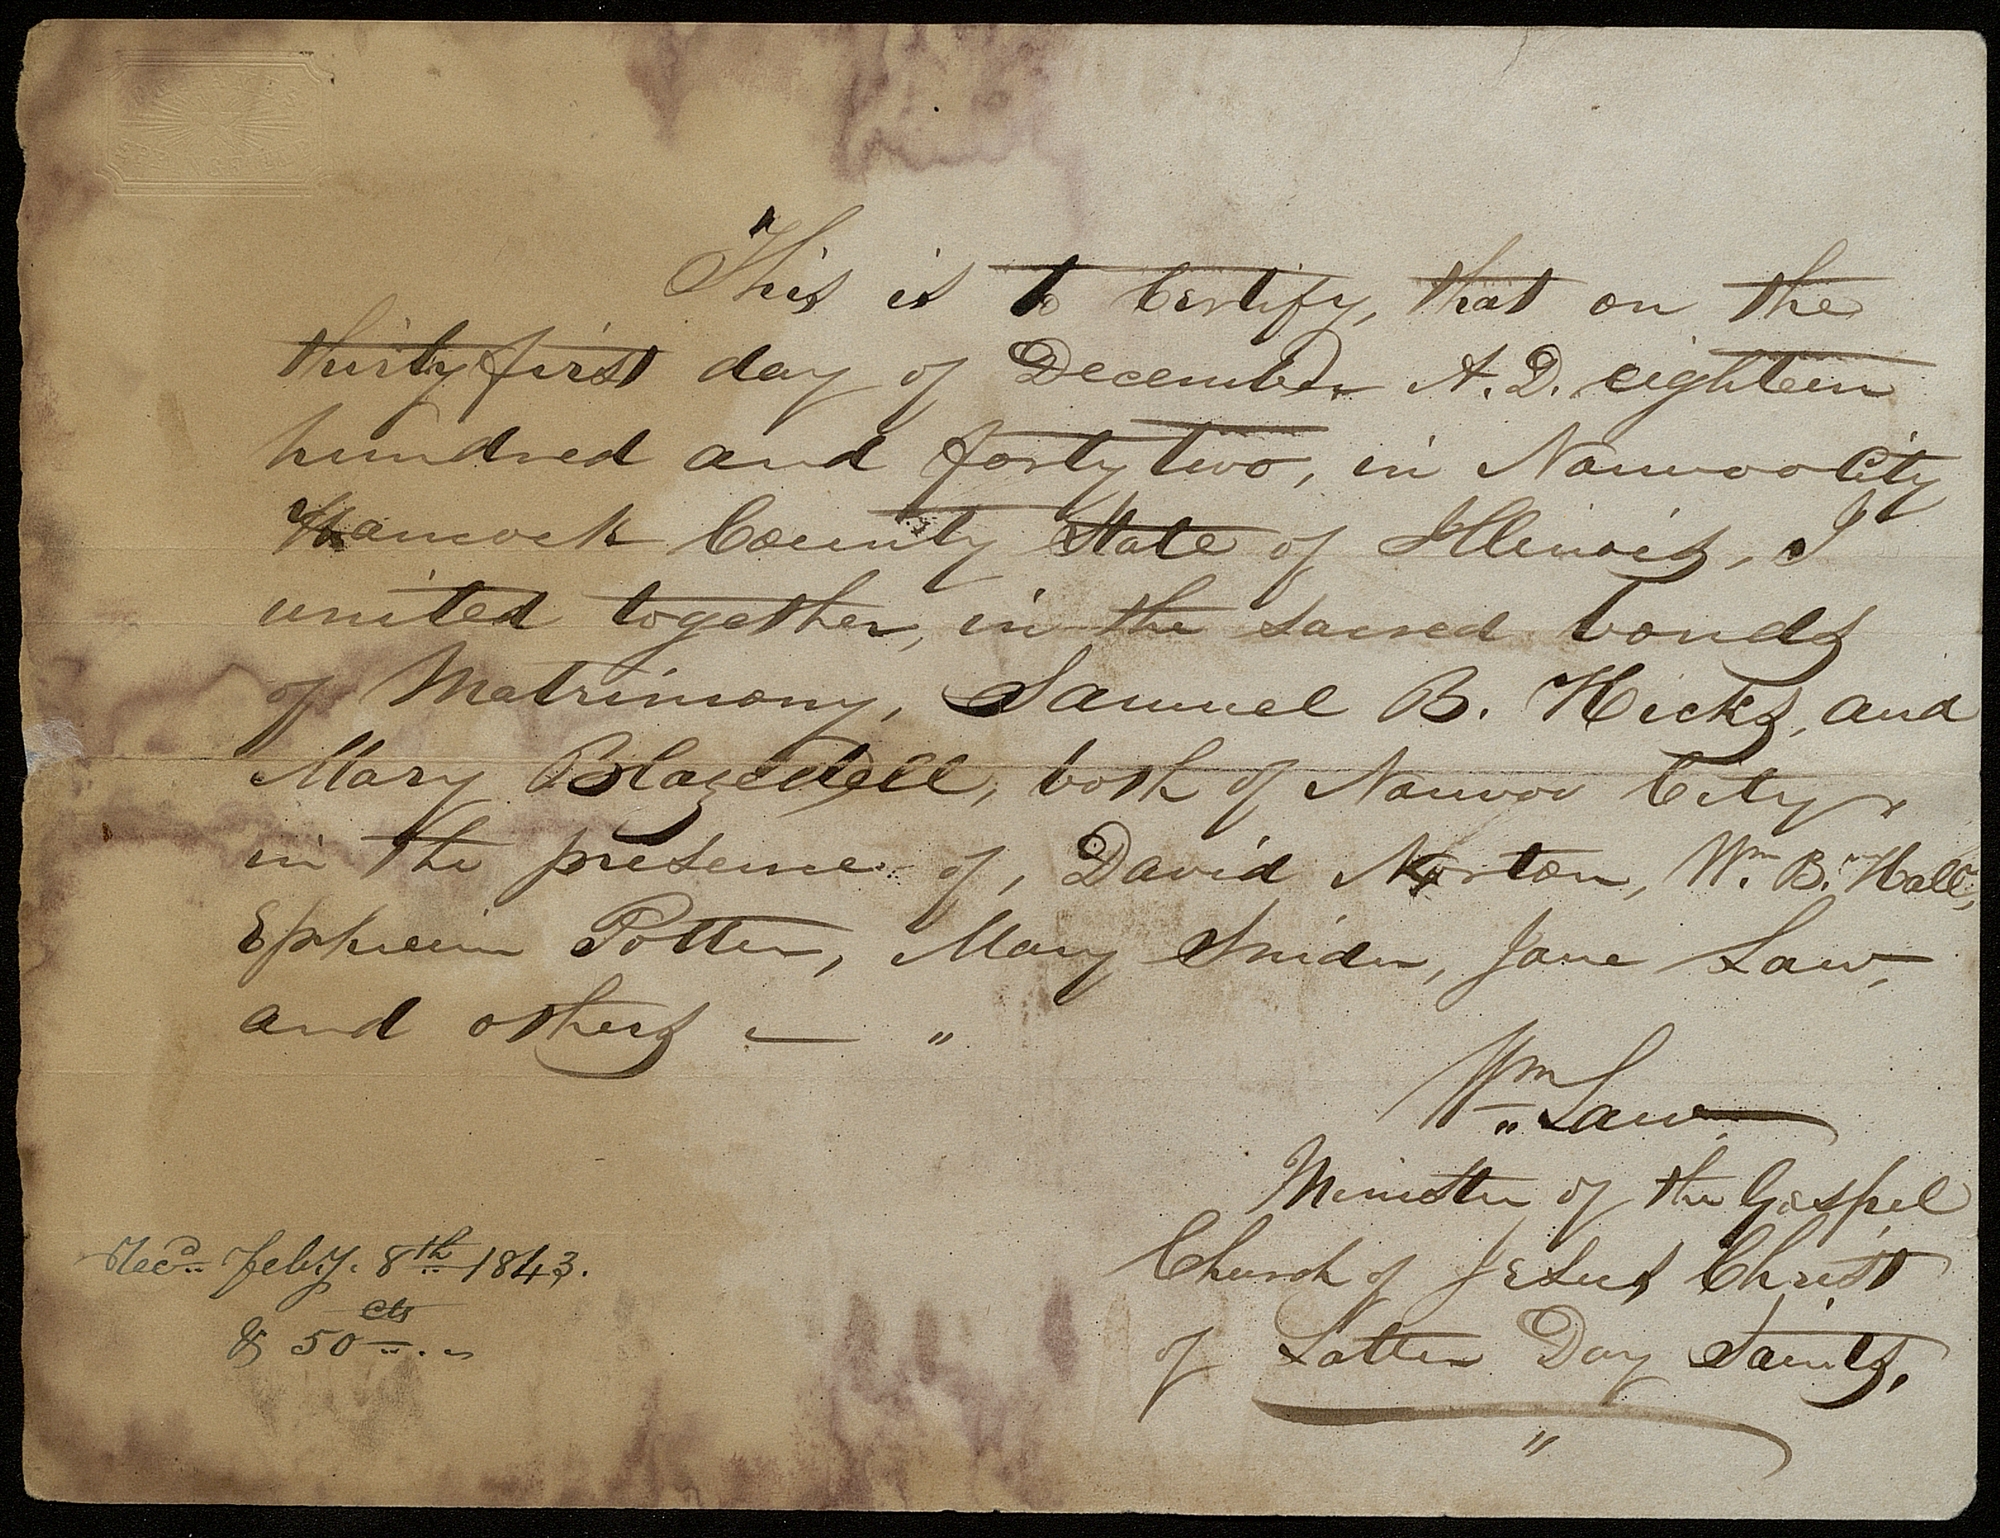 This is to Certify, that on the
thirty first day of December A. D. eighteen
hundred and forty two, in Nauvoo City
Hancock County State of Illinois, I
united together, in the sacred bonds
of Matrimony, Samuel B. Hicks, and
Mary Blazedell, both of Nauvoo City,
in the presence of, David Norton, Wm. B. Hall,
Ephraim Potter, Mary Snider, Jane Law,
and others — "
Wm Law
Minister of the Gospel
Church of Jesus Christ
of Latter Day Saints.
Recd. Feby. 8th 1843.
& 50 cts